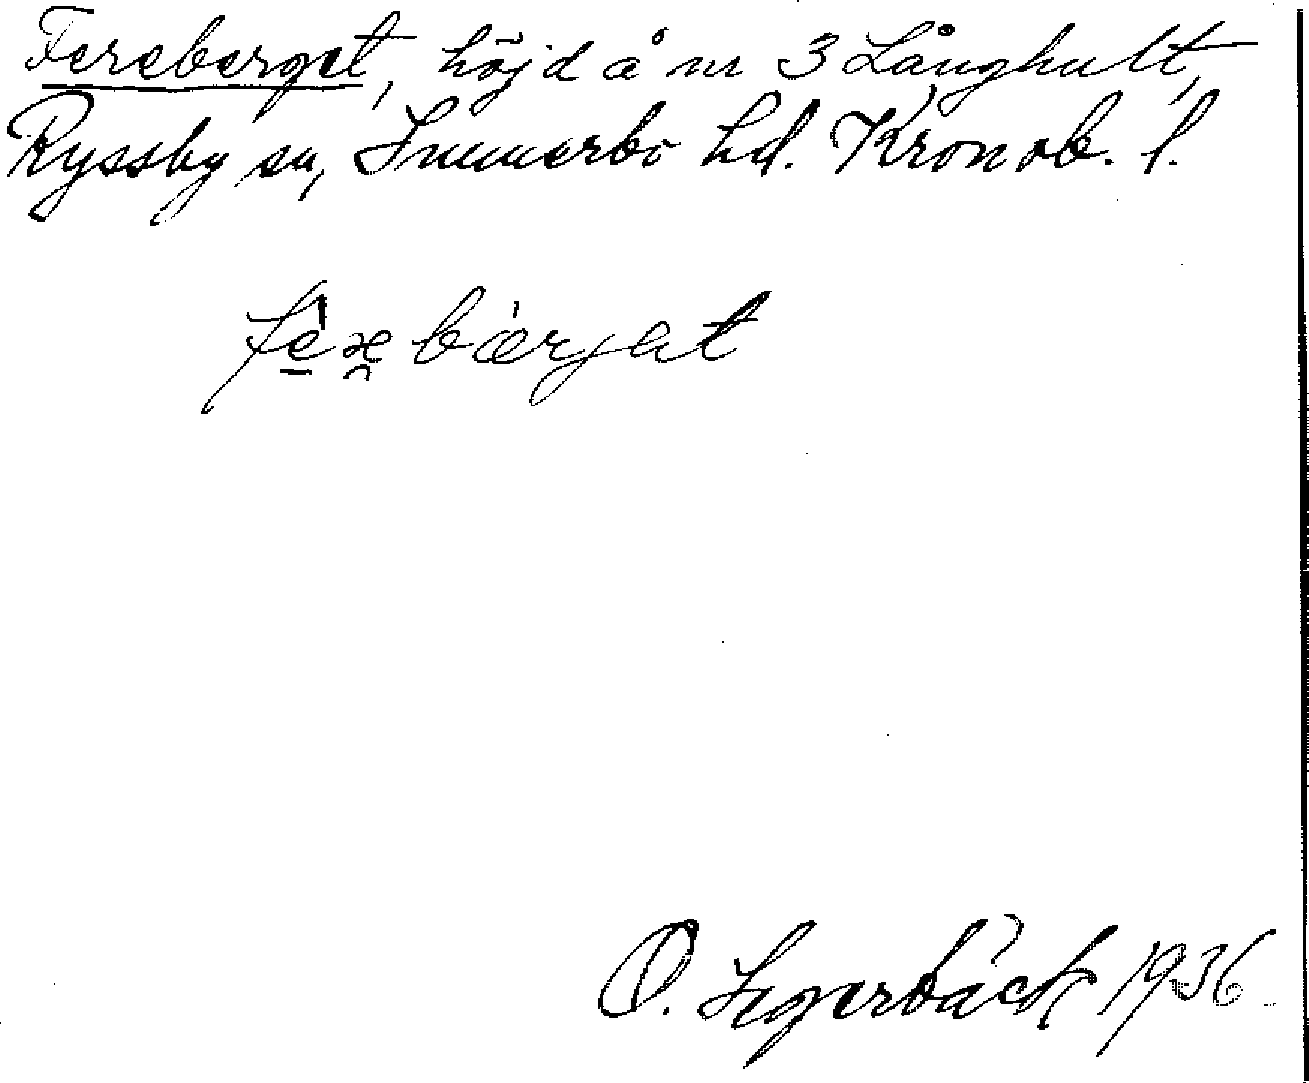 Fereberget, höjd å nr 3 Långhult,
Ryssby sn, Sunnerbo hd. Kronob. l.
O. Segerbäck 1936